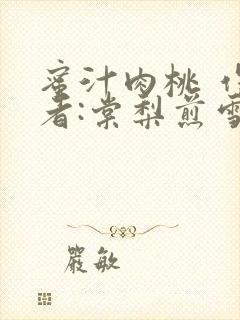 蜜汁肉桃
者:棠梨煎雪
嚴敏